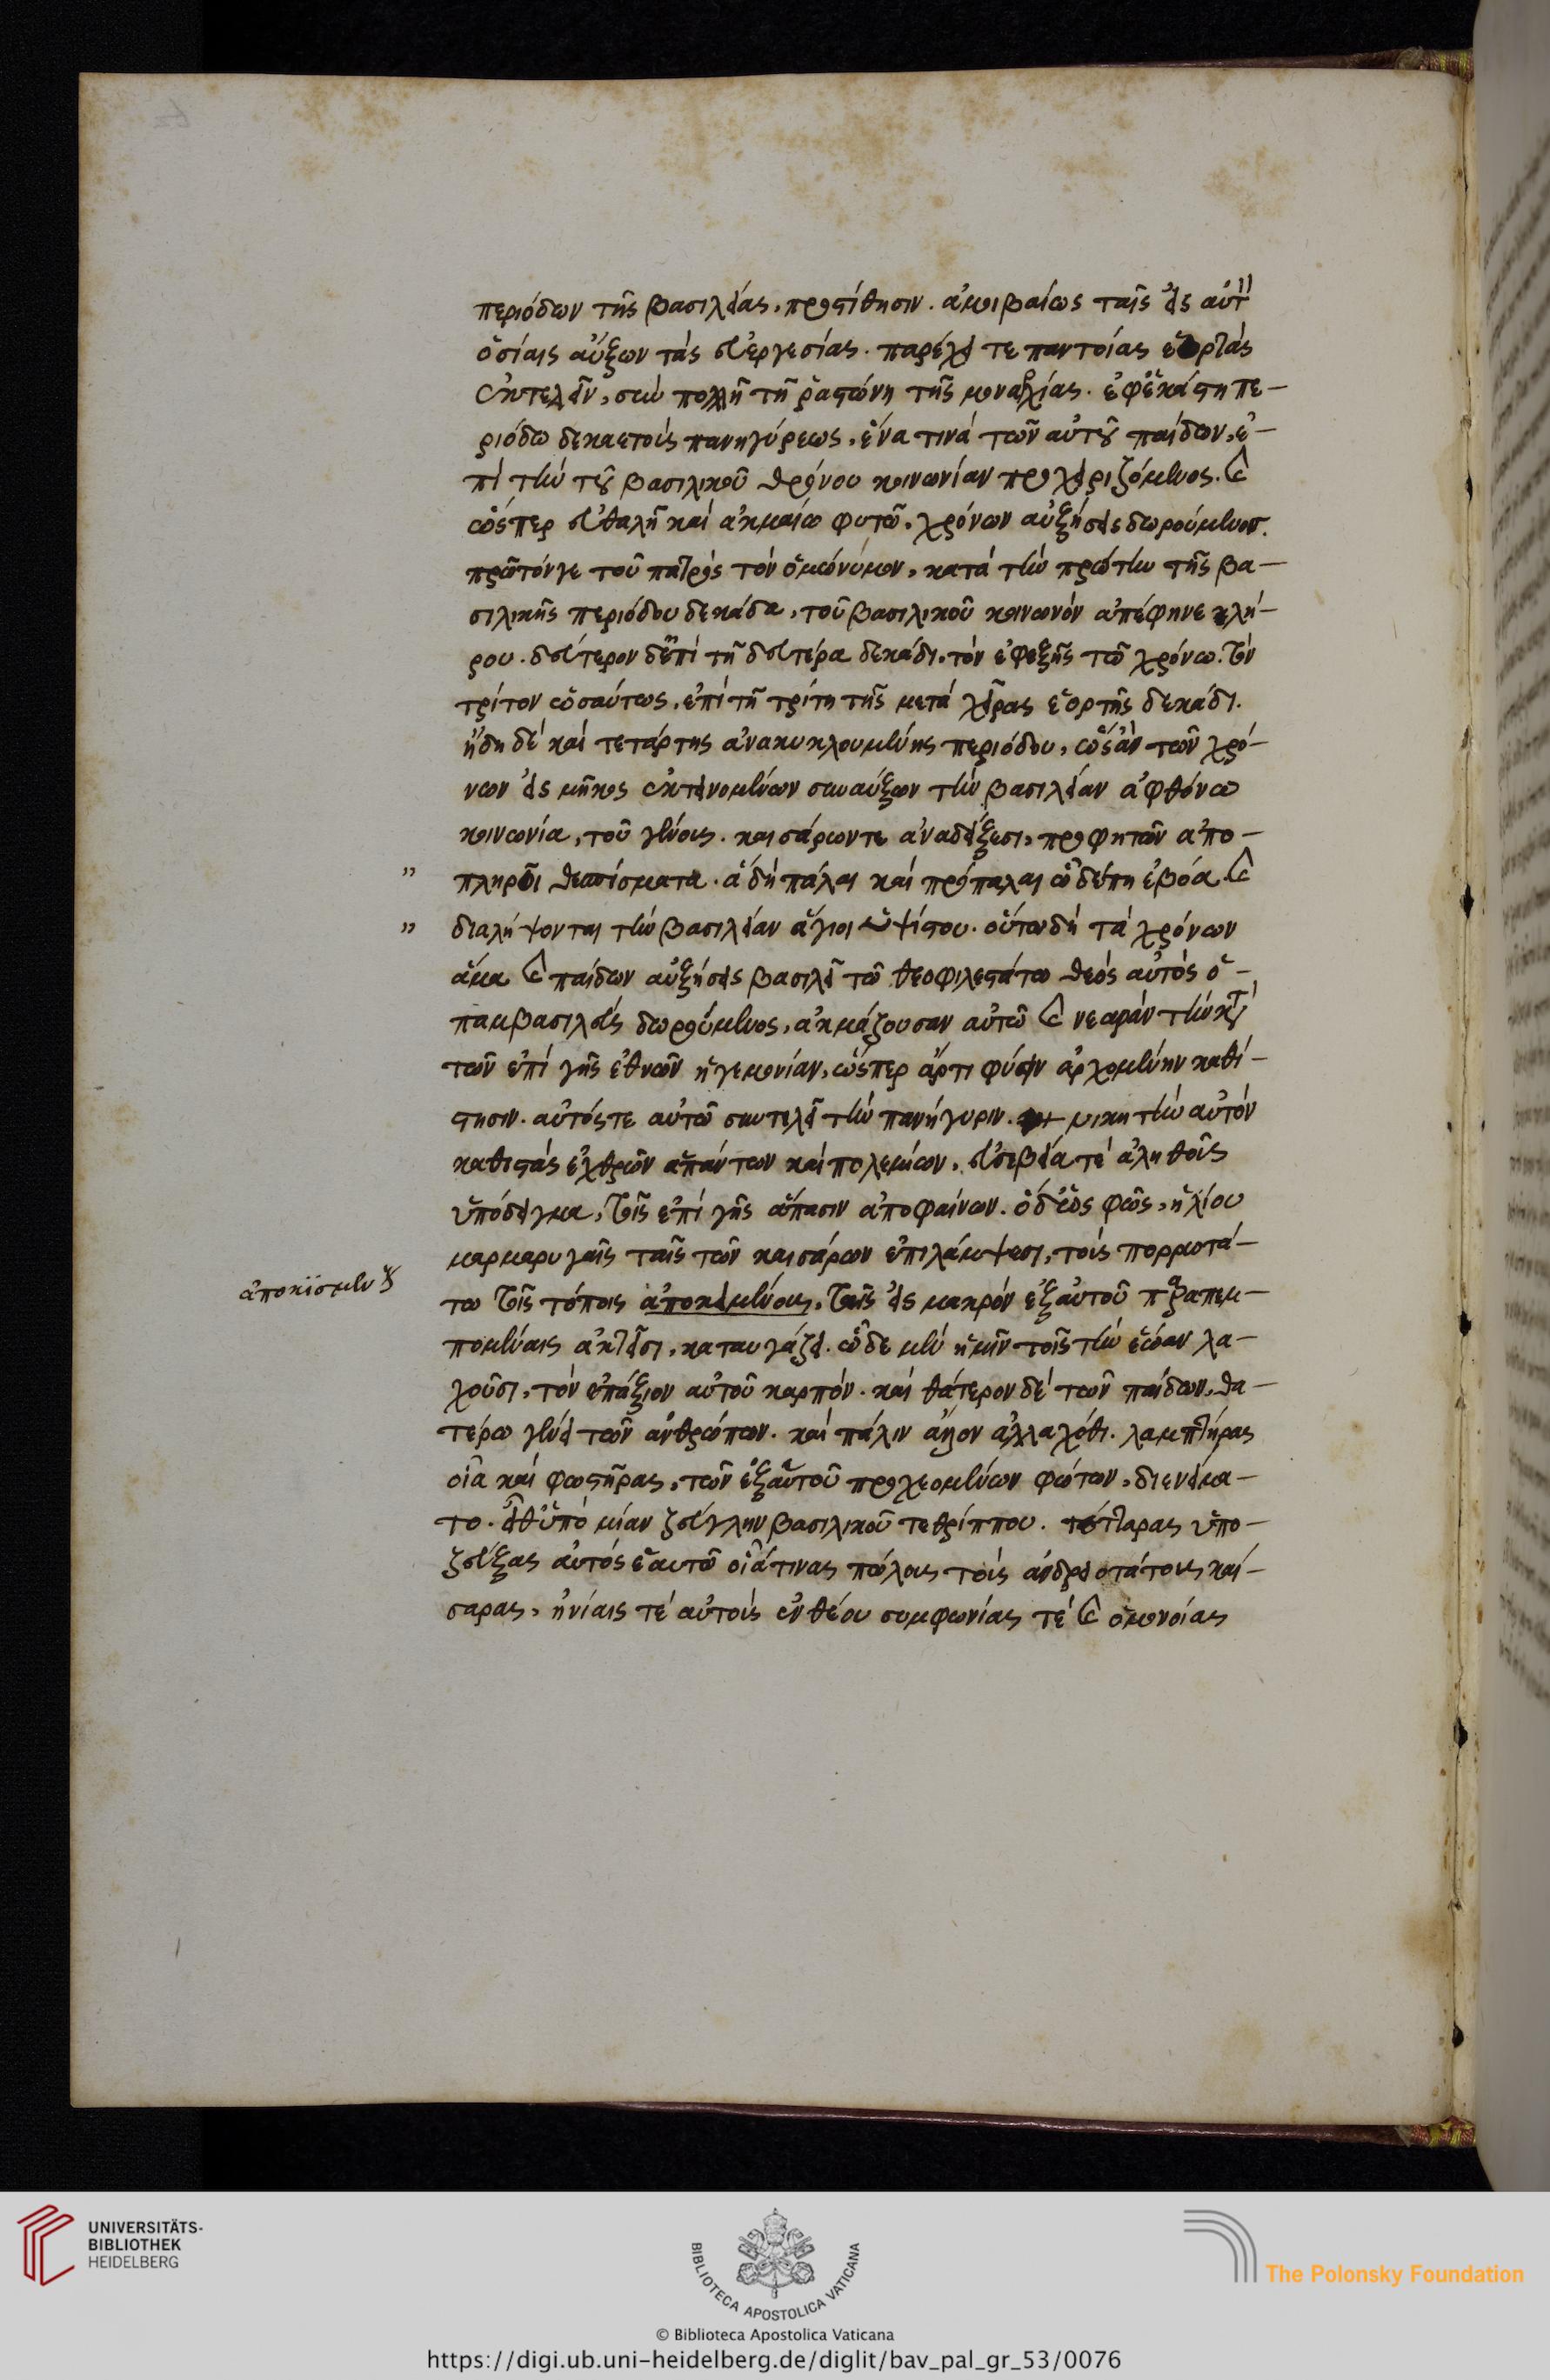 περιόδων τῆς βασιλείας, προστίθησιν. ἀμοιβαίως ταῖς εἰς αὐτ
ὁσίαις αὔξων τὰς εὐεργεσίας. παρέχει τε παντοίας ἑορτὰς
ἐκτελεῖν, σὺν πολλῆ τῆ ῥαστώνη τῆς μοναρχίας. ἐφ' ἑκάστη πε-
ριόδω δεκαετοῦς πανηγύρεως, ἕνα τινὰ τῶν αὐτοῦ παίδων, ἐ-
πὶ τὴν τοῦ βασιλικοῦ θρόνου κοινωνίαν προχειριζόμενος. καὶ
ὥσπερ εὐθαλῆ καὶ ἀκμαίω φυτῶ, χρόνων αὐξήσεις δωρούμενος.
πρῶτόν γε τοῦ πατρὸς τὸν ὁμώνυμον, κατὰ τὴν πρώτην τῆς βα-
σιλικῆς περιόδου δεκάδα, τοῦ βασιλικοῦ κοινωνὸν ἀπέφηνε κλή-
ρου. δεύτερον δ' ἐπὶ τῆ δευτέρα δεκάδι, τὸν ἐφεξῆς τῶ χρόνω. τὸν
τρίτον ὡσαύτως, ἐπὶ τῆ τρίτη τῆς μετὰ χεῖρας ἑορτῆς δεκάδι.
ἤδη δὲ καὶ τετάρτης ἀνακυκλουμένης περιόδου, ὡσὰν τῶν χρό-
νων εἰς μῆκος ἐκτεινομένων συναύξων τὴν βασιλείαν ἀφθόνω
κοινωνία, τοῦ γένους. καισάρων τε ἀναδείξεσι, προφητῶν ἀπο-
" πληροῖ θεσπίσματα. ἃ δὴ πάλαι καὶ πρόπαλαι ὧδέ πη ἐβόα. καὶ
" διαλήψονται τὴν βασιλείαν ἅγιοι ὑψίστου. οὕτω δὴ τὰ χρόνων
ἅμα καὶ παίδων αὐξήσεις βασιλεῖ τῶ θεοφιλεστάτω θεὸς αὐτὸς ὁ-
παμβασιλεὺς δωρούμενος, ἀκμάζουσαν αὐτῶ καὶ νεαρὰν τὴν κατὰ
τῶν ἐπὶ γῆς ἐθνῶν ἡγεμονίαν, ὥσπερ ἄρτι φύειν ἀρχομένην καθί-
στησιν. αὐτός τε αὐτῶ συντελεῖ τὴν πανήγυριν. νικητὴν αὐτὸν
καθιστὰς ἐχθρῶν ἁπάντων καὶ πολεμίων, εὐσεβείας τὲ ἀληθοῦς
ὑπόδειγμα, τοῖς ἐπὶ γῆς ἅπασιν ἀποφαίνων. ὁ δ' ὡς φῶς, ἡλίου
μαρμαρυγαῖς ταῖς τῶν καισάρων ἐπιλάμψεσι, τοὺς πορρωτά-
ἀποκισμένους
τω τοῖς τόποις ἀποκειμένους, ταῖς εἰς μακρὸν ἐξ αὐτοῦ παραπεμ-
πομέναις ἀκτῖσι, καταυγάζει. ὧδε μὲν ἡμῖν τοῖς τὴν ἑώαν λα-
χοῦσι, τὸν ἐπάξιον αὐτοῦ καρπόν. καὶ θάτερον δὲ τῶν παίδων, θα-
τέρω γένει τῶν ἀνθρώπων. καὶ πάλιν ἄλλον ἀλλαχόθι. λαμπτῆρας
οἷα καὶ φωστῆρας, τῶν ἐξ αὐτοῦ προχεομένων φώτων, διενείμα-
το. εἶθ' ὑπὸ μίαν ζεύγλην βασιλικοῦ τεθρίππου. τέτταρας ὑπο-
ζεύξας αὐτὸς ἑαυτῶ οἷά τινας πώλους τοὺς ἀνδρειοτάτους καί-
σαρας, ἡνίαις τὲ αὐτοὺς ἐνθέου συμφωνίας τὲ καὶ ὁμονοίας
UNIVERSITÄTS-
BIBLIOTHEK
HEIDELBERG
BIBLIOTECA APOSTOLICA VATICANA
The Polonsky Foundation
© Biblioteca Apostolica Vaticana
https://digi.ub.uni-heidelberg.de/diglit/bav_pal_gr_53/0076